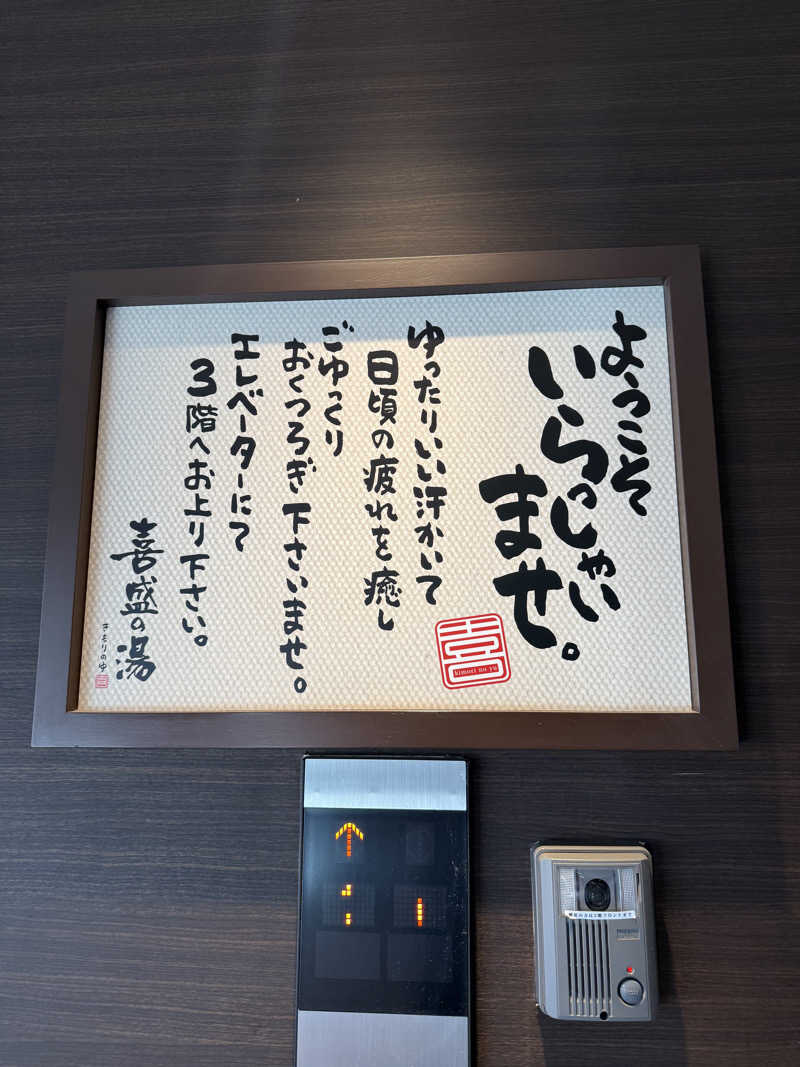 ようこそ
いらっしゃい
ませ。
喜
kimori no yu
ゆったりいい汗かいて
日頃の疲れを癒し
ごゆっくり
おくつろぎ下さいませ。
エレベーターにて
3階へお上り下さい。
喜盛の湯
きもりのゆ